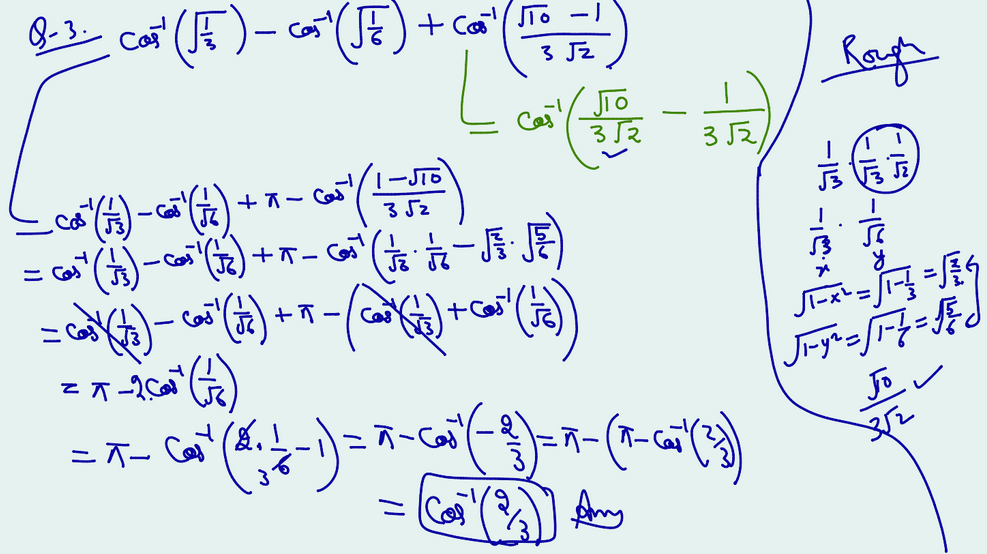 Q-3. cos⁻¹(√(1/3)) − cos⁻¹(√(1/6)) + cos⁻¹((√10 − 1)/(3√2))
= cos⁻¹(√10/(3√2) − 1/(3√2))
= cos⁻¹(1/√3) − cos⁻¹(1/√6) + π − cos⁻¹((1−√10)/(3√2))
= cos⁻¹(1/√3) − cos⁻¹(1/√6) + π − cos⁻¹(1/√3 · 1/√6 − √(2/3) · √(5/6))
= cos⁻¹(1/√3) − cos⁻¹(1/√6) + π − (cos⁻¹(1/√3) + cos⁻¹(1/√6))
= π − 2cos⁻¹(1/√6)
= π − cos⁻¹(2 · 1/6 3 − 1) = π − cos⁻¹(−2/3) = π − (π − cos⁻¹(2/3))
= cos⁻¹(2/3) Ans
Rough
1/√3 · 1/√3 · 1/√2
1/√3 · 1/√6
x y
√(1−x²) = √(1−1/3) = √(2/3)
√(1−y²) = √(1−1/6) = √(5/6)
√10/(3√2) ✓